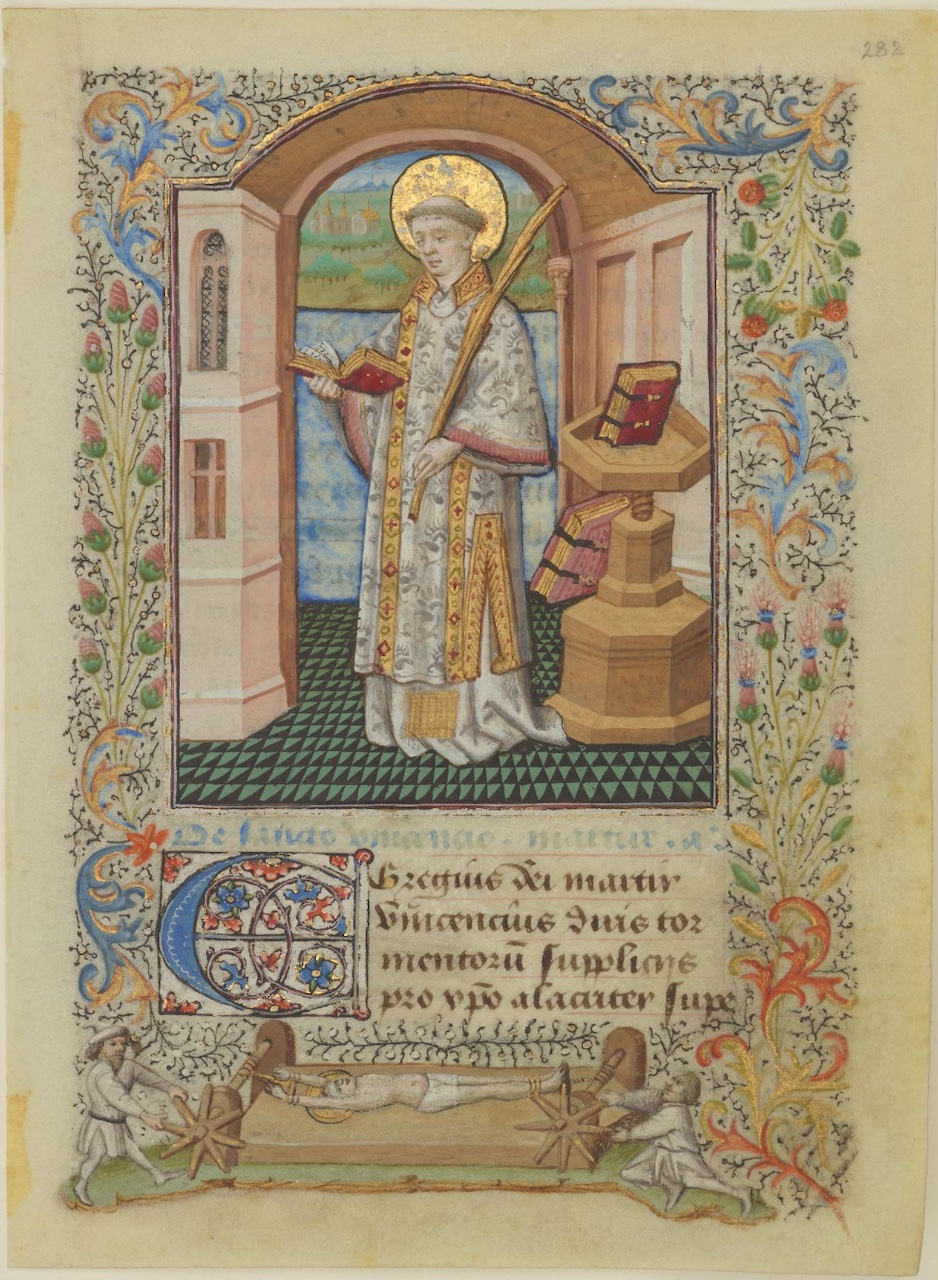 282
De sancto vincencio . martir . a͂
Egregius dei martir
vincencius duis tor
mentorū suppliciis
pro xp̄o alacriter supe